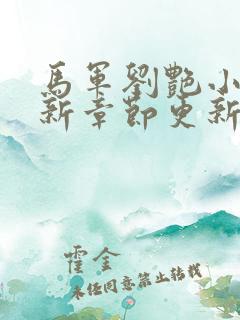 馬軍劉艷小
新章節更新
霍金
未经同意禁止转载